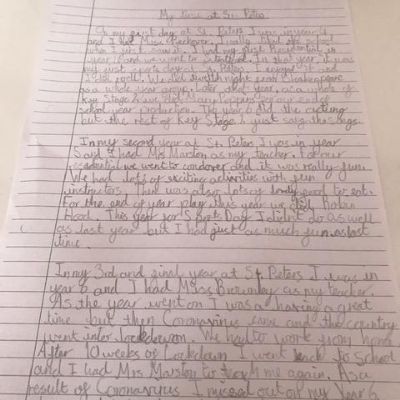 My time at St. Peters
On my first day at St. Peters I was in year 4
and I had Miss
when I first saw it. I had my first Residential in
year 4 and we went to
my first sports day at St. Peters. I enjoyed it and
I did well. We did twelth night from Shakespeare
as a whole year group. Later that year, as a whole of
Key Stage 2, we did Mary Poppins for our end of
school year production. The year 6 did the acting
but the rest of Key Stage 2 just sang the songs.
In my second year at St. Peters I was in year
5 and I had Mrs Marston as my teacher. For our
residential we went to condover and it was really fun.
We had lots of exciting activities with fun
instructors. There was also lots of lovely food to eat.
For the end of year play this year we did Robin
Hood. This year for Sports Day I didn't do as well
as last year but I had just as much fun as last
time.
In my 3rd and final year at St Peters I was in
year 6 and I had Miss as my teacher.
As the year went on I was a having a great
time but then Coronavirus came and the country
went into lockdown. We had to work from home.
After 10 weeks of Lockdown I went back to School
and I had Mrs Marston to teach me again. As a
result of Coronavirus I missed out on my Year 6